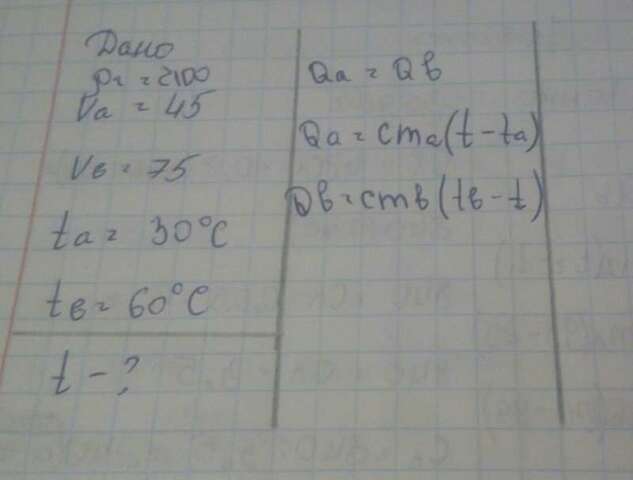 Дано
ρ₁ = 2100
Va = 45
Vв = 75
ta = 30°C
tв = 60°C
t - ?
Qa = Qв
Qa = cma(t - ta)
Qв = cmв(tв - t)